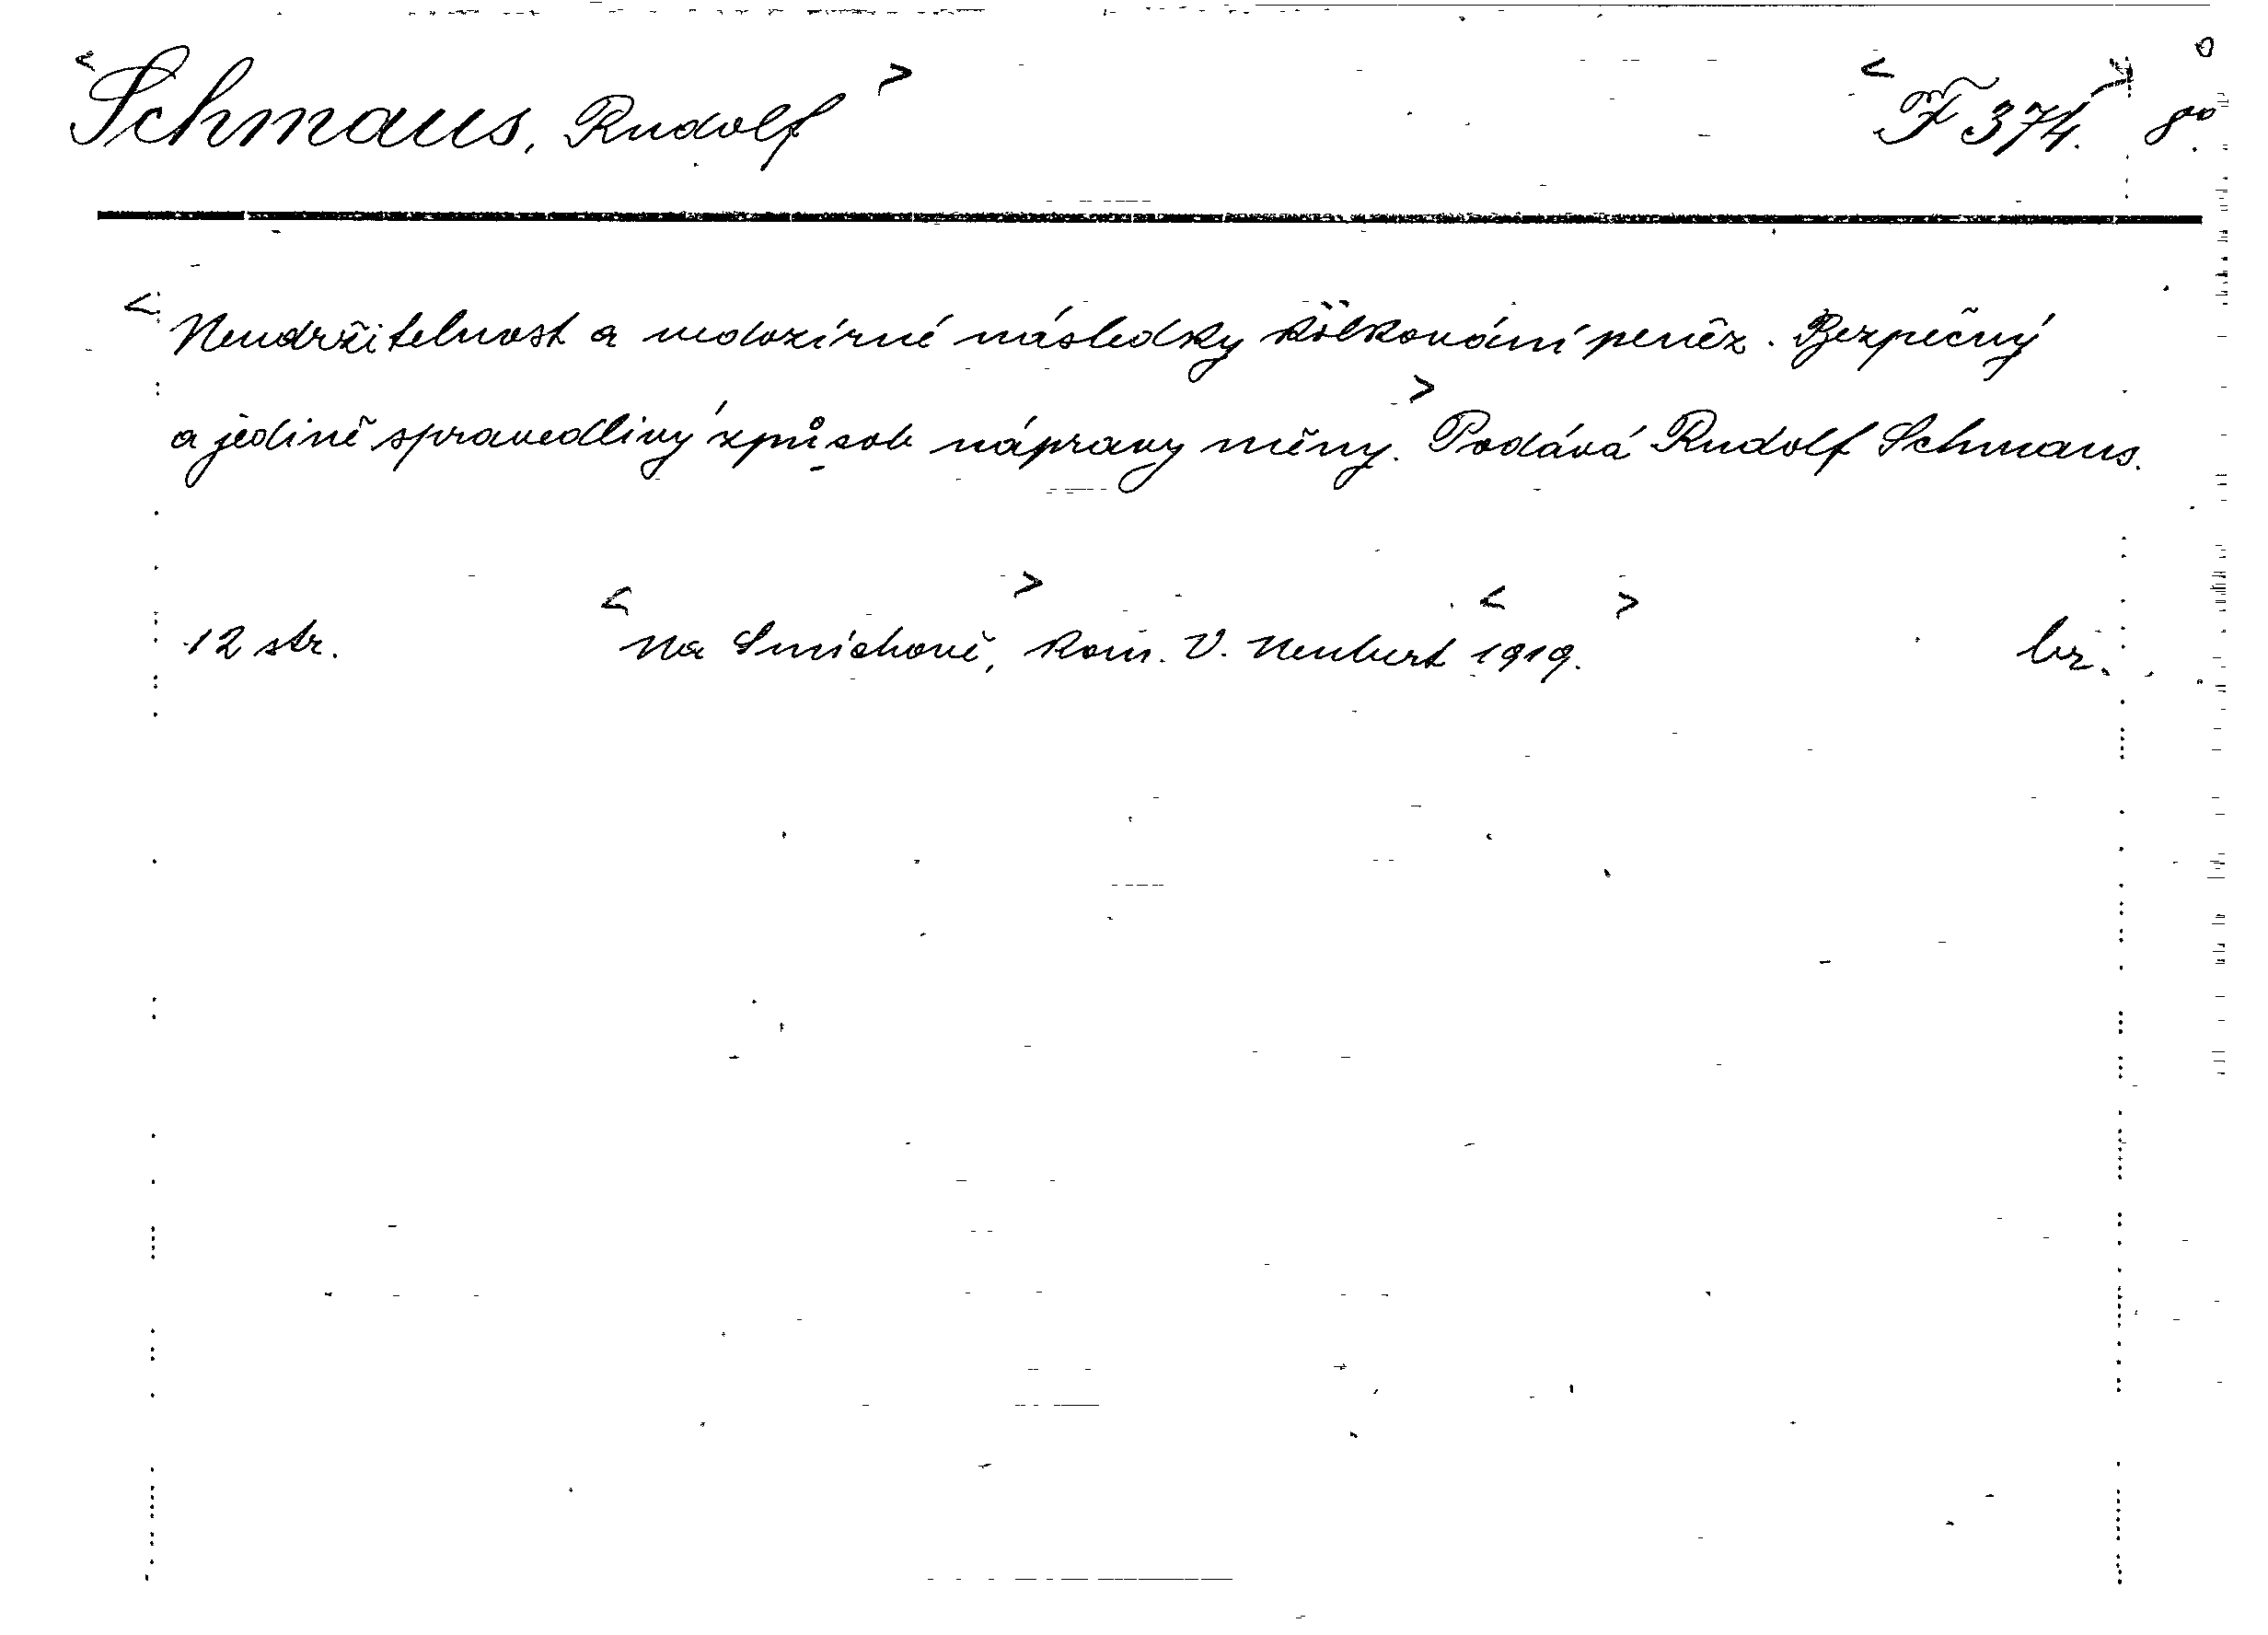 <Schmaus, Rudolf> <F 374.> 8°
<Neudržitelnost a nedozírné následky kolkování peněz. Bezpečný
a jedině spravedlivý způsob nápravy měny.> Podává Rudolf Schmaus.
12 str. <Na Smíchově,> kom. V. Neubert <1919.> br.